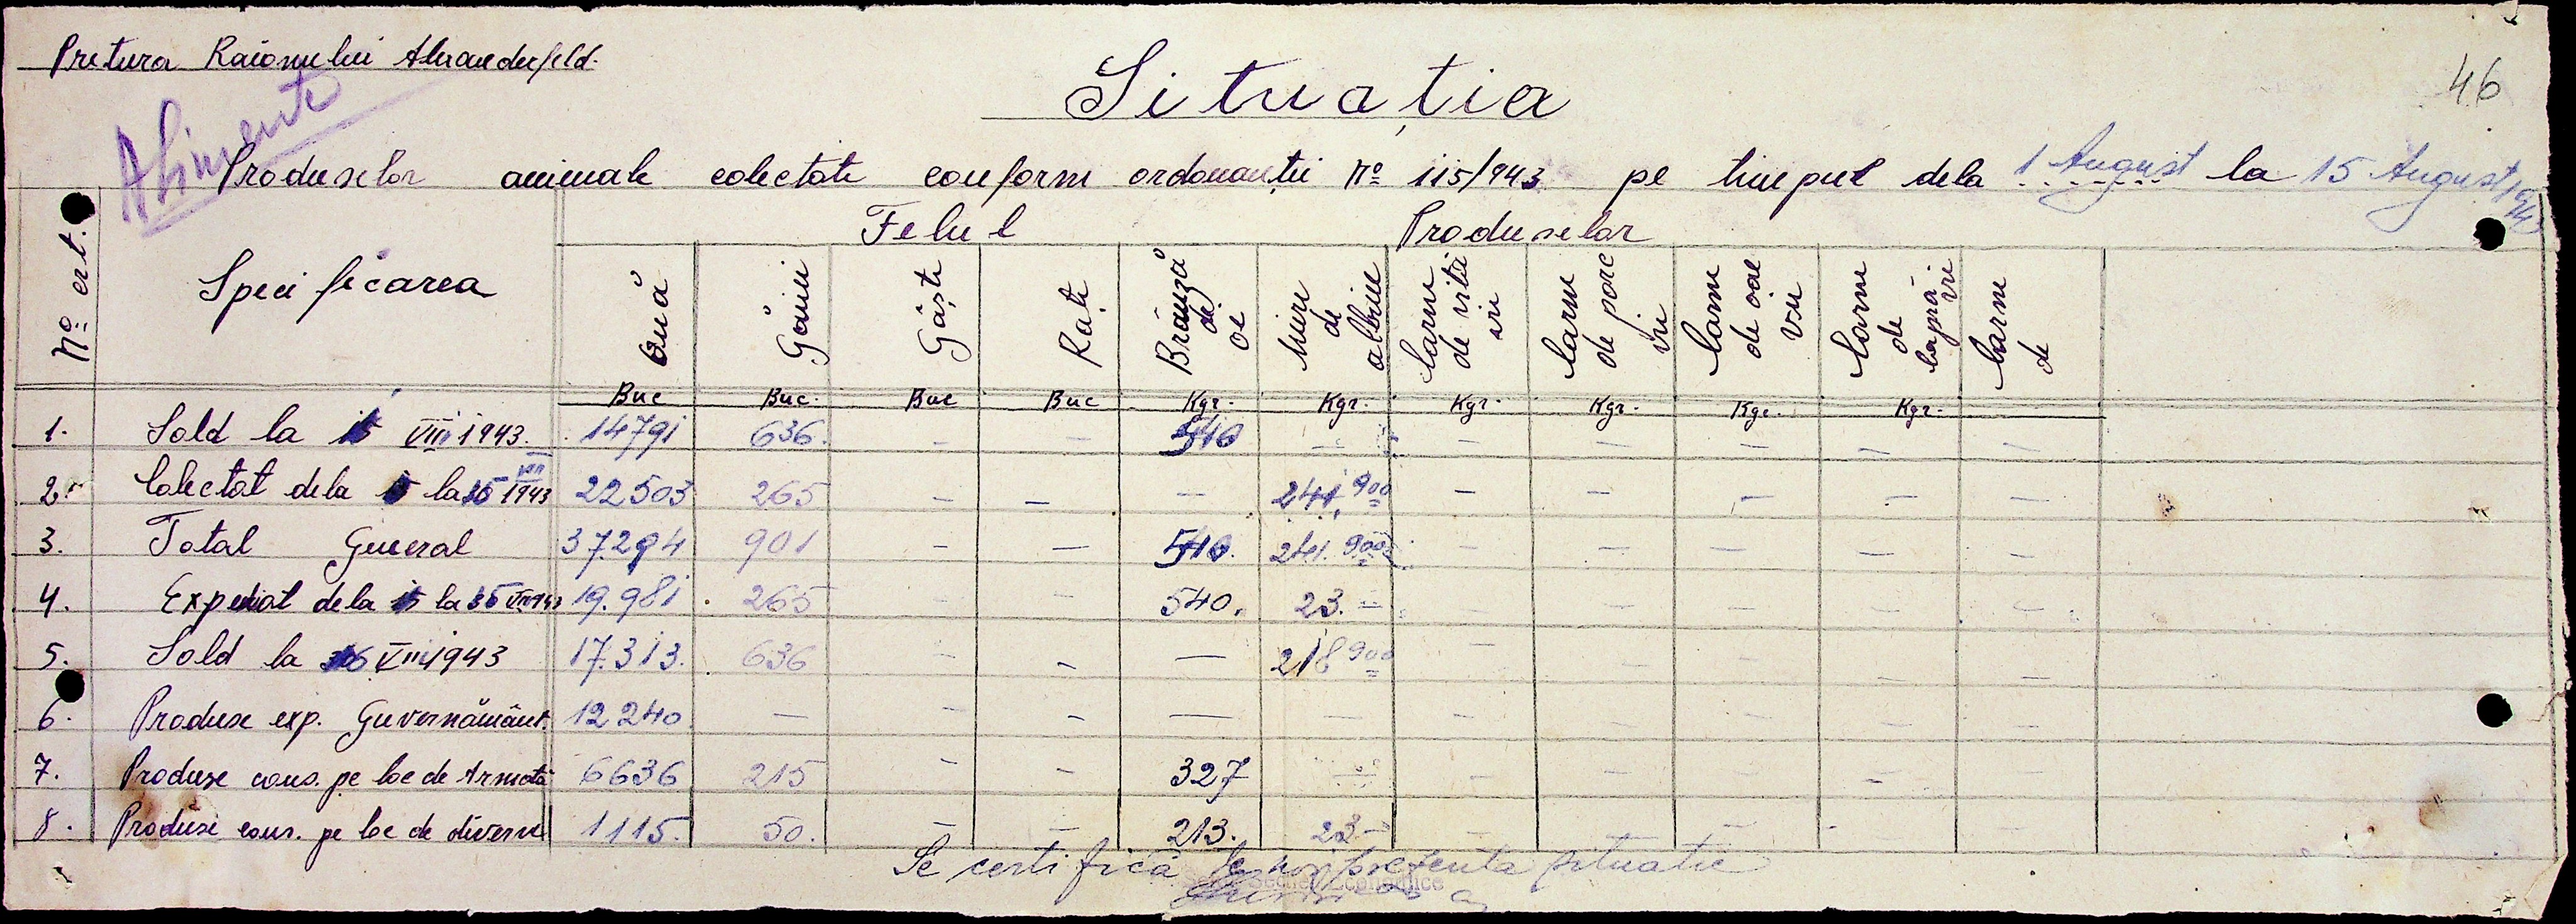 Pretura Raionului Alexanderfeld.
46
Situația
Alimente
Produselor animale colectate conform ordonanței Nº 115/943 pe timpul dela 1 August la 15 August 1943
Nº crt. Specificarea Felul Produselor
Ouă Găini Gâște Rațe Brânză de oi Miere de albine Carne de vită viu Carne de porc viu Carne de oae viu Carne de capră viu Carne de
Buc Buc. Buc Buc Kgr. Kgr. Kgr. Kgr. Kgr. Kgr.
1. Sold la 1 VIII 1943. 14791 636. - - 540 - - - - - -
2. Colectat dela 1 la 15 VIII 1943 22503 265 - - - 241,900 - - - - -
3. Total General 37.294 901 - - 540. 241.900 - - - - -
4. Expediat dela 1 la 15 VIII 943 19.981 265 - - 540. 23.- - - - - -
5. Sold la 16 VIII 1943 17.313. 636 - - - 218 900 - - - - -
6. Produse exp. Guvernământ. 12240. - - - - - - - - - -
7. Produse cons. pe loc de Armată 6636 215 - - 327 - - - - - -
8. Produse cons. pe loc de diverse 1115. 50. - - 213. 23- - - - - -
Se certifică de noi prezenta situatie